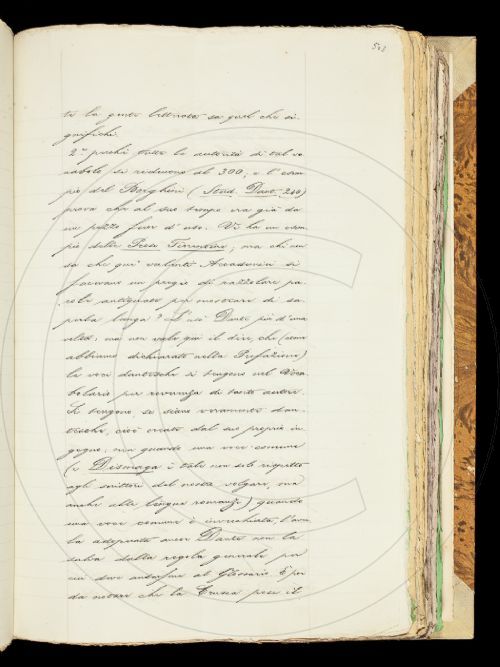 503
te la gente letterata sa quel che si-
gnifichi.
2.º perché tutte le autorità di tal vo-
cabolo si riducono al 300, e l'esem-
pio del Borghini (Stud. Dant. 240)
prova che al suo tempo era già da
un pezzo fuor d'uso. Vi ha un esem-
pio delle Prose Fiorentine; ma chi non
sa che que' valenti Accademici si
facevano un pregio di razzolare pa-
role antiquate per mostrare di sa-
perla lunga? L'usò Dante più d'una
volta; ma non vale già il dire, che (come
abbiamo dichiarato nella Prefazione)
le voci dantesche si tengono nel Voca-
bolario per reverenza di tanto autore.
Si tengono, se siano veramente dan-
tesche, cioè create dal suo proprio in-
gegno; ma quando una voce comune
(e Dismaga è tale non solo rispetto
agli scrittori del nostro volgare, ma
anche alle lingue romanze) quando
una voce comune è invecchiata, l'aver-
la adoperata anco Dante non la
salva dalla regola generale per
cui deve andarsene al Glossario. È poi
da notare che la Crusca pose il